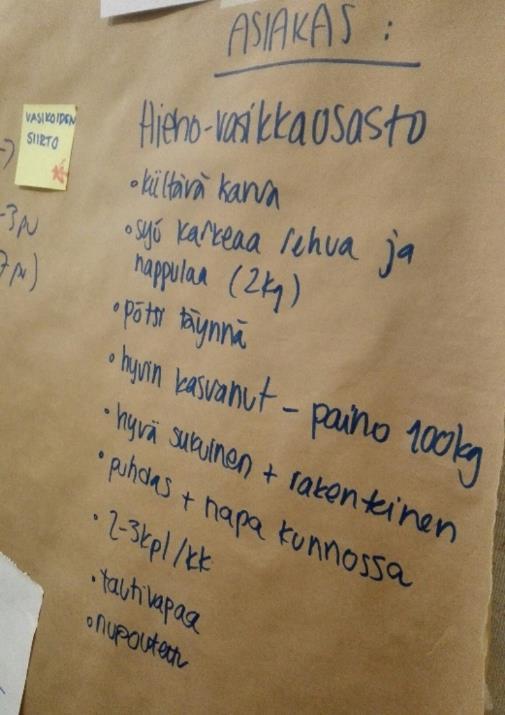 ASIAKAS :
VASIKOIDEN
SIIRTO
Hieho-vasikkaosasto
• kiiltävä karva
• syö karkeaa rehua ja
nappulaa (2kg)
• pötsi täynnä
• hyvin kasvanut - paino 100kg
• hyvä sukuinen + rakenteinen
• puhdas + napa kunnossa
• 2-3kpl/kk
• tautivapaa
• nupoutettu